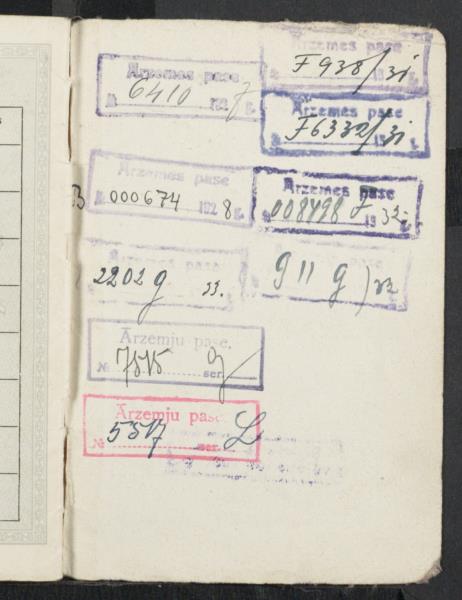 Ārzemes pase
№ 6410 1927 g.
Ārzemes pase
F938/31
Ārzemes pase
F6332/31
Ārzemes pase
№ 000674 1928 g.
Ārzemes pase
№ 008498 1932
Ārzemes pase
2202 g 33.
911 g
Ārzemju pase.
№ 7515 ser. g
Ārzemju pase.
№ 5517 ser. L